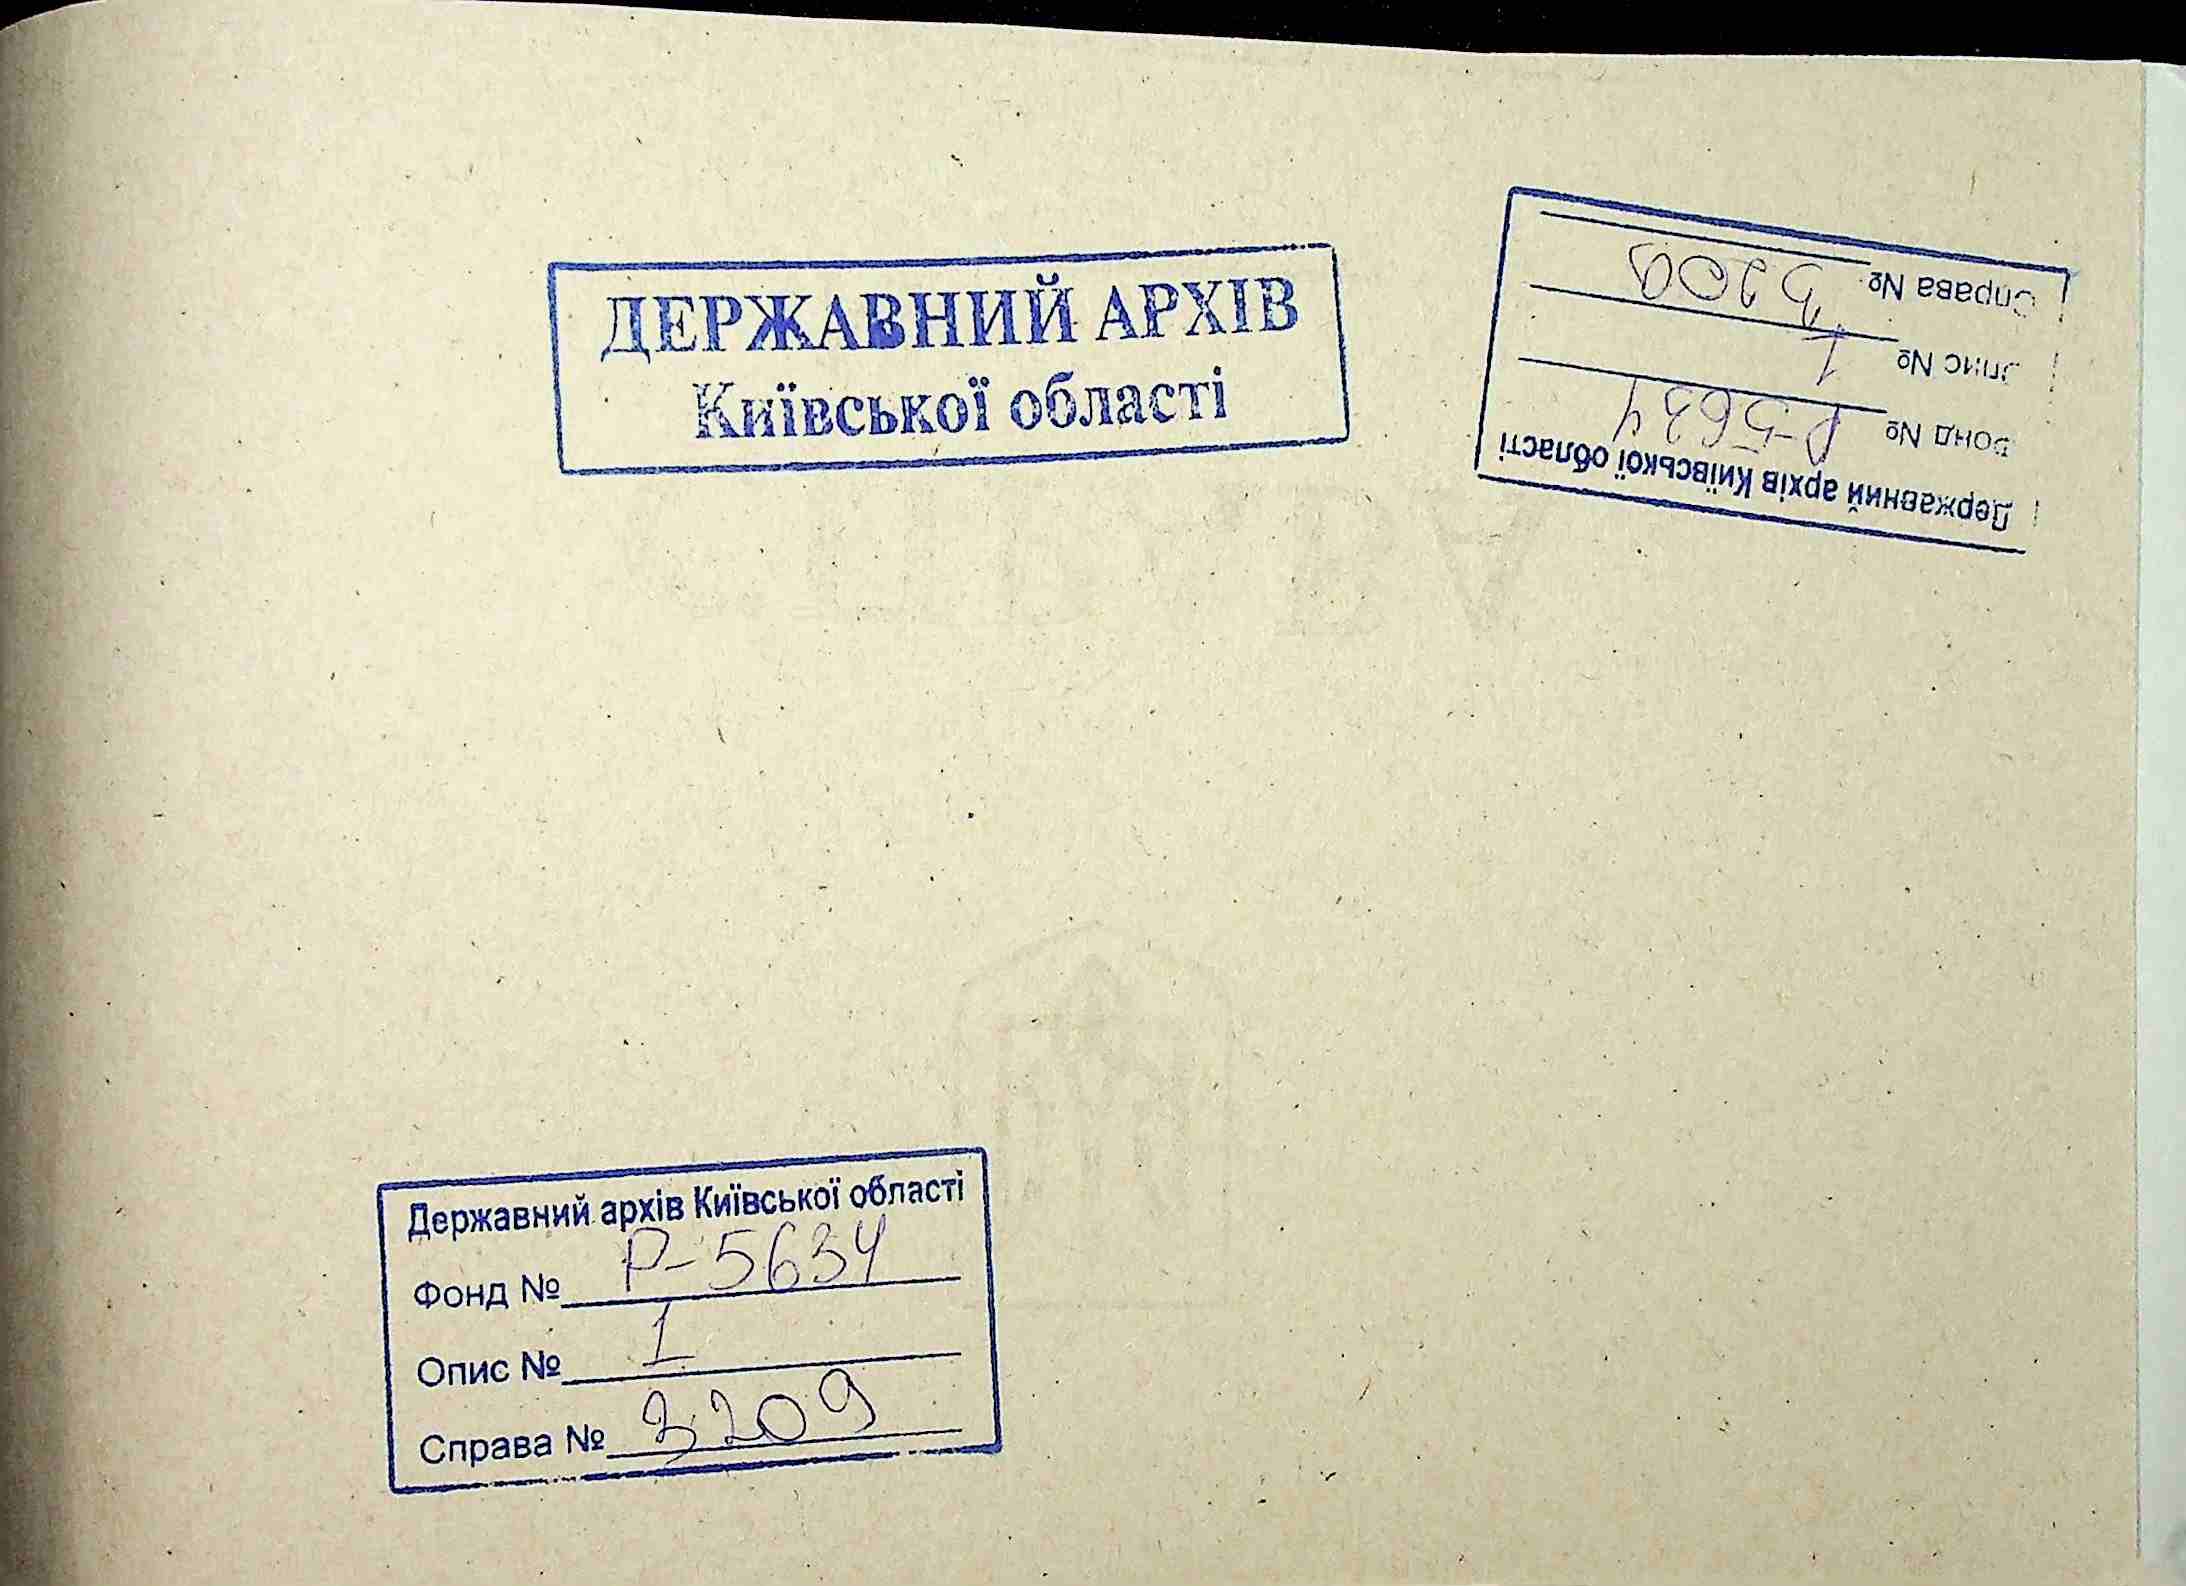 ДЕРЖАВНИЙ АРХІВ
Київської області
Державний архів Київської області
Фонд № Р-5634
Опис № 1
Справа № 3209
Державний архів Київської області
Фонд № Р-5634
Опис № 1
Справа № 3209